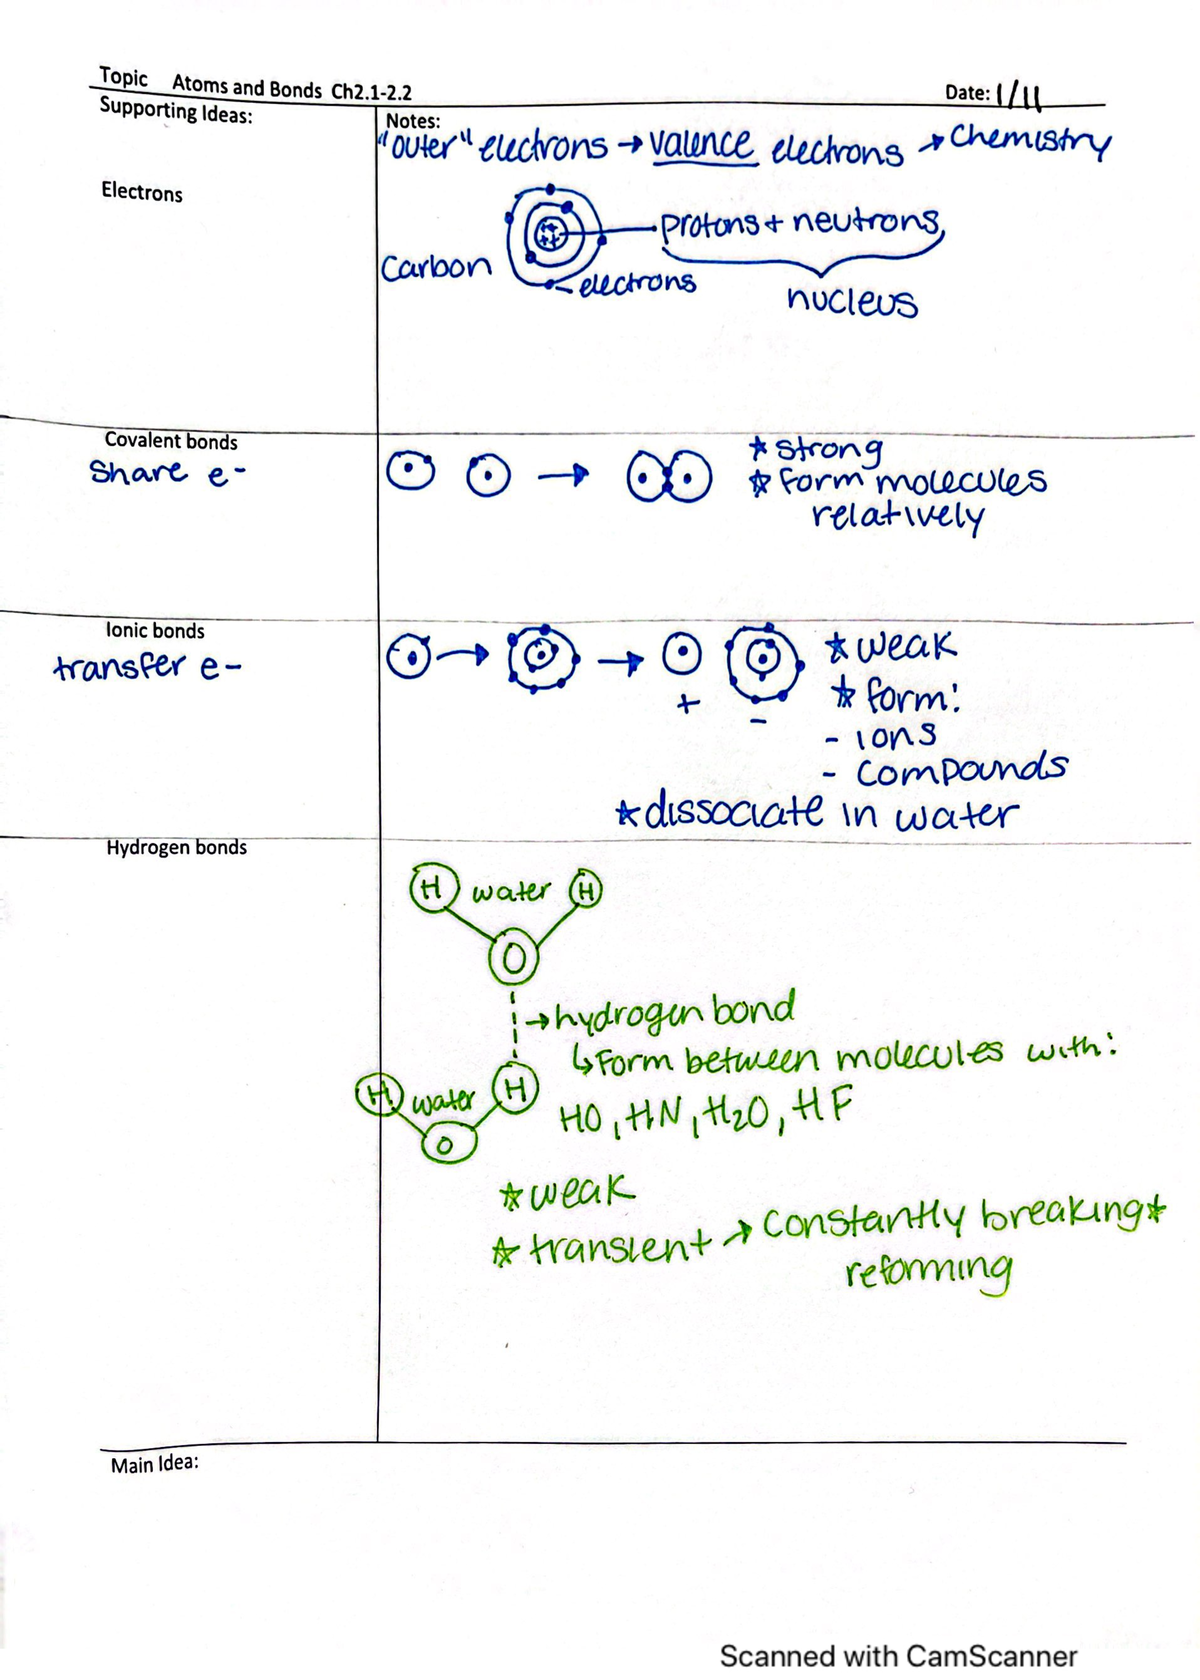 Topic Atoms and Bonds Ch2.1-2.2 Date: 1/11
Supporting Ideas:
Notes:
"outer" electrons → valence electrons → Chemistry
Electrons
protons + neutrons
Carbon
electrons
nucleus
Covalent bonds
Share e-
★ strong
★ form molecules
relatively
Ionic bonds
transfer e-
+
-
★ weak
★ form:
- ions
- compounds
★ dissociate in water
Hydrogen bonds
H water H
O
→ hydrogen bond
↳ Form between molecules with:
H water H
O
HO, HN, H2O, HF
★ weak
★ transient → constantly breaking ★
reforming
Main Idea:
Scanned with CamScanner